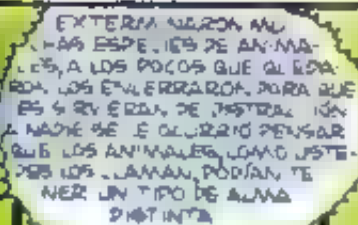 EXTERMINARON MU-
CHAS ESPECIES DE ANIMA-
LES, A LOS POCOS QUE QUEDA-
RON, LOS ENCERRARON, PARA QUE
LES SIRVIERAN DE DISTRACCIÓN
A NADIE SE LE OCURRIÓ PENSAR
QUE LOS ANIMALES, COMO USTE-
DES LOS LLAMAN, PODÍAN TE
NER UN TIPO DE ALMA
DISTINTA